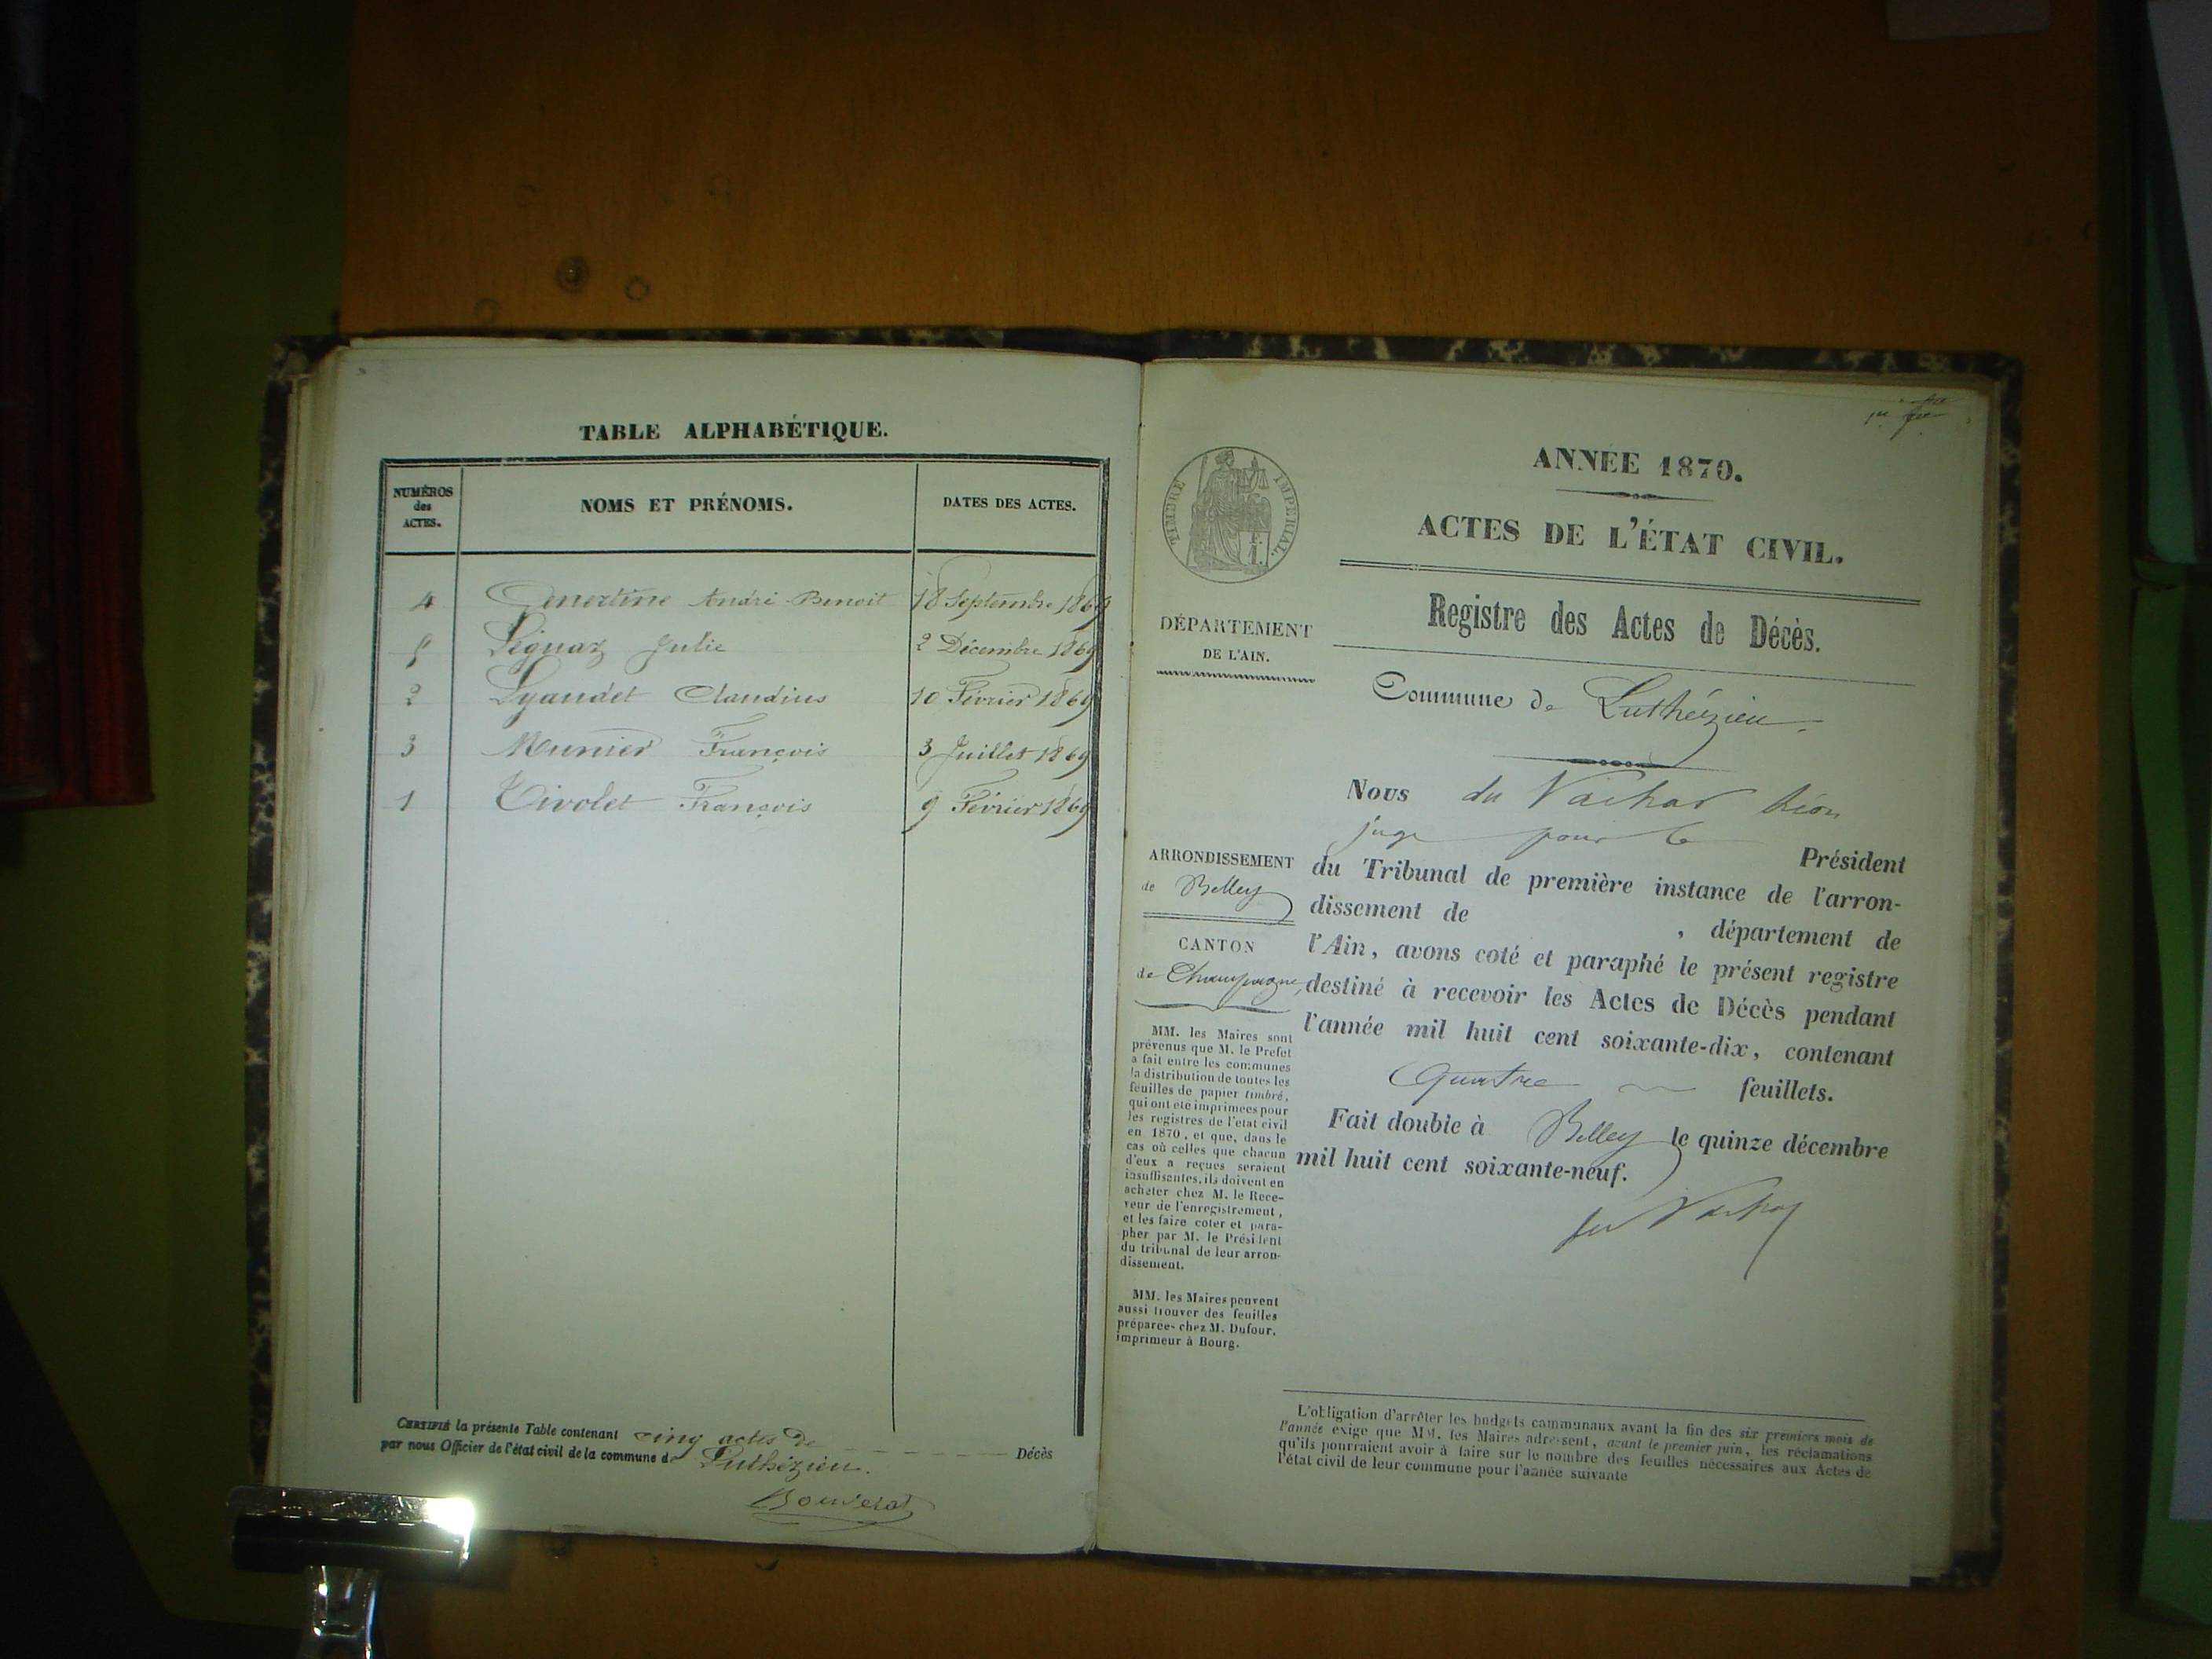 TABLE ALPHABÉTIQUE.
NUMÉROS
des
ACTES.
NOMS ET PRÉNOMS.
DATES DES ACTES.
4 André Benoit 18 Septembre 1869
5 Julie 2 Décembre 1869
2 Lyaudet Claudius 10 Février 1869
3 Munier François 3 Juillet 1869
1 Tivolet François 9 Février 1869
CERTIFIÉ la présente Table contenant cinq actes de Décès
par nous Officier de l'état civil de la commune de Luthézieu.
Bouverat
ANNÉE 1870.
ACTES DE L'ÉTAT CIVIL.
TIMBRE IMPÉRIAL.
1 F.
DÉPARTEMENT
DE L'AIN.
Registre des Actes de Décès.
Commune de Luthézieu.
Nous du Vachat Léon
juge pour le Président
du Tribunal de première instance de l'arron-
dissement de , département de
l'Ain, avons coté et paraphé le présent registre
destiné à recevoir les Actes de Décès pendant
l'année mil huit cent soixante-dix, contenant
Quatre feuillets.
Fait double à Belley le quinze décembre
mil huit cent soixante-neuf.
du Vachat
ARRONDISSEMENT
de Belley
CANTON
de Champagne,
MM. les Maires sont
prévenus que M. le Préfet
a fait entre les communes
la distribution de toutes les
feuilles de papier timbré,
qui ont été imprimées pour
les registres de l'état civil
en 1870, et que, dans le
cas où celles que chacun
d'eux a reçues seraient
insuffisantes, ils doivent en
acheter chez M. le Rece-
veur de l'enregistrement,
et les faire coter et para-
pher par M. le Président
du tribunal de leur arron-
dissement.
MM. les Maires peuvent
aussi trouver des feuilles
préparées chez M. Dufour,
imprimeur à Bourg.
L'obligation d'arrêter les budgets communaux avant la fin des six premiers mois de
l'année exige que MM. les Maires adressent, avant le premier juin, les réclamations
qu'ils pourraient avoir à faire sur le nombre des feuilles nécessaires aux Actes de
l'état civil de leur commune pour l'année suivante